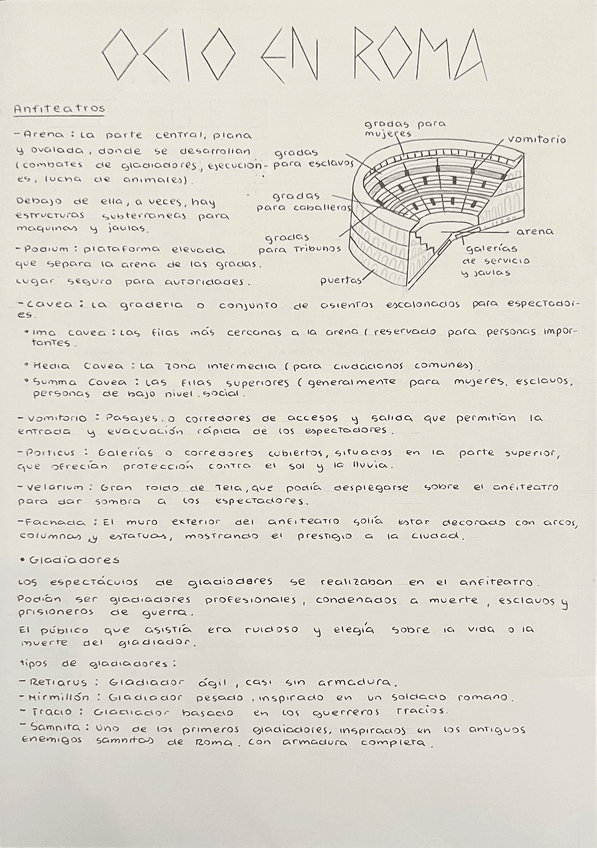 OCIO EN ROMA
Anfiteatros
- Arena : La parte central, plana
y ovalada, donde se desarrollan
(combates de gladiadores, ejecucion-
es, lucha de animales).
Debajo de ella, a veces, hay
estructuras subterraneas para
maquinas y jaulas.
- Podium : plataforma elevada
que separa la arena de las gradas.
Lugar seguro para autoridades.
gradas para
mujeres
vomitorio
gradas
para esclavos
gradas
para caballeros
gradas
para Tribunos
arena
galerías
de servicio
y jaulas
puertas
- Cavea : La gradería o conjunto de asientos escalonados para espectador-
es.
• Ima cavea : Las filas más cercanas a la arena ( reservado para personas impor-
tantes.
• Media Cavea : La zona intermedia (para ciudadanos comunes)
• Summa Cavea : Las filas superiores ( generalmente para mujeres, esclavos,
personas de bajo nivel social.
- Vomitorio : Pasajes o corredores de accesos y salida que permitían la
entrada y evacuación rápida de los espectadores.
- Porticus : Galerías o corredores cubiertos, situados en la parte superior,
que ofrecían protección contra el sol y la lluvia.
- Velarium : Gran toldo de Tela, que podía desplegarse sobre el anfiteatro
para dar sombra a los espectadores.
- Fachada : El muro exterior del anfiteatro solía estar decorado con arcos,
columnas y estatuas, mostrando el prestigio a la ciudad.
• Gladiadores
Los espectáculos de gladiadores se realizaban en el anfiteatro.
Podían ser gladiadores profesionales, condenados a muerte, esclavos y
prisioneros de guerra.
El público que asistía era ruidoso y elegía sobre la vida o la
muerte del gladiador.
tipos de gladiadores :
- Retiarus : Gladiador ágil, casi sin armadura.
- Mirmillón : Gladiador pesado, inspirado en un soldado romano.
- Tracio : Gladiador basado en los guerreros Tracios.
- Samnita : uno de los primeros gladiadores, inspirados en los antiguos
enemigos samnitas de Roma. Con armadura completa.